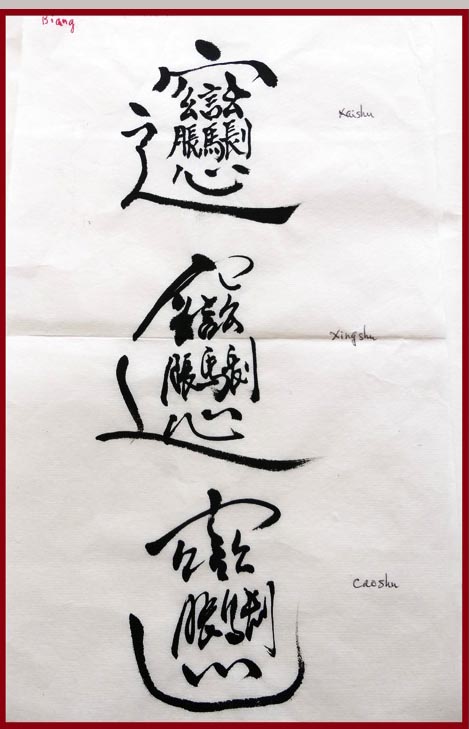 Biang
𰻞
Kaishu
𰻞
Xingshu
𰻞
Caoshu